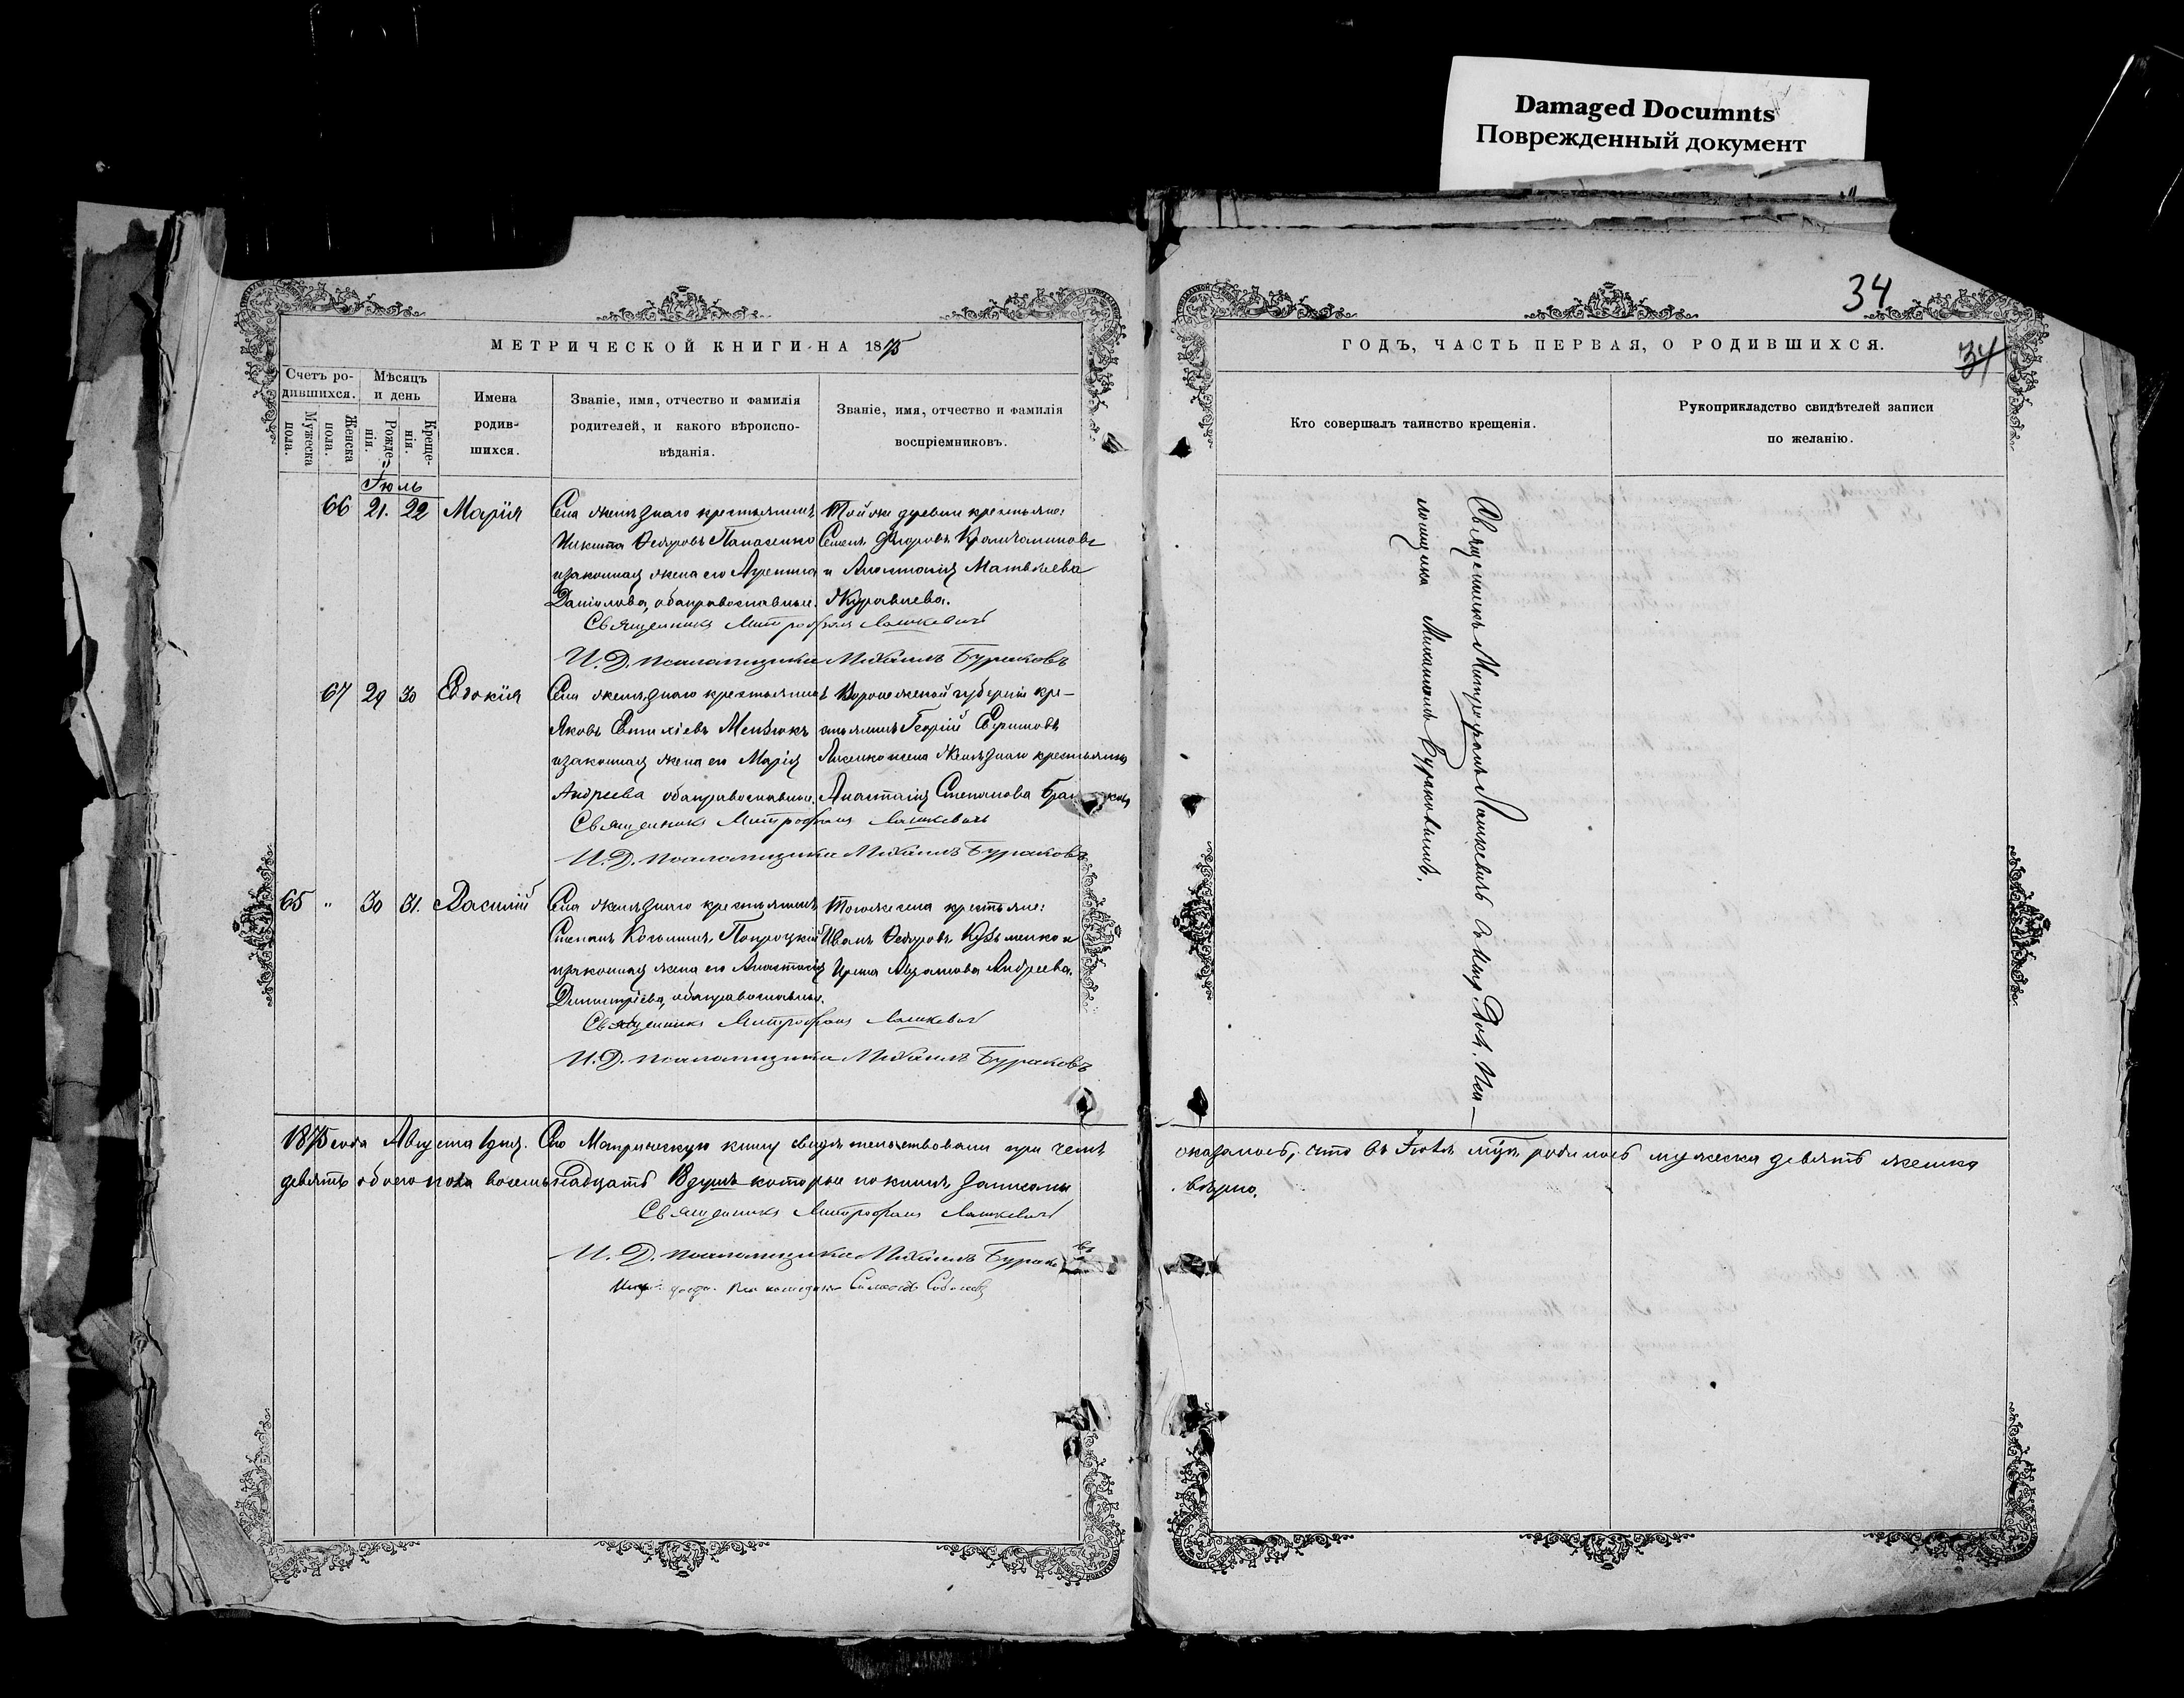 Damaged Documnts
Поврежденный документ
34
34
МЕТРИЧЕСКОЙ КНИГИ НА 1875
ГОДЪ, ЧАСТЬ ПЕРВАЯ, О РОДИВШИХСЯ.
Счетъ ро-
дившихся.
Мужеска
пола.
Женска
пола.
Мѣсяцъ
и день
Рожде-
нія.
Креще-
нія.
Имена
родив-
шихся.
Званіе, имя, отчество и фамилія
родителей, и какого вѣроиспо-
вѣданія.
Званіе, имя, отчество и фамилія
воспріемниковъ.
Кто совершалъ таинство крещенія.
Рукоприкладство свидѣтелей записи
по желанію.
Іюль
66 21. 22 Марія
Села Желѣзнаго крестьянинъ
Никита Ѳедоровъ Панасенко
и законная жена его
Данилова, оба православные.
Той же деревни крестьяне:
Семенъ
и Анастасія Матвѣева
Журавлева.
Священникъ Митрофанъ Лашкевичъ
И. Д. псаломщика Михаилъ Бураковъ
67 29 30 Евдокія
Села Желѣзнаго крестьянинъ
Яковъ Евтихіевъ
и законная жена его Марія
Андреева оба православные.
Воронежской губерніи кре-
стьянинъ Георгій
Лисенко жена Желѣзнаго крестьянина
Анастасія Степанова
Священникъ Митрофанъ Лашкевичъ
И. Д. псаломщика Михаилъ Бураковъ
65 " 30 31. Василій
Села Желѣзнаго крестьянинъ
Степанъ
и законная жена его Анастасія
Димитріева, оба православные.
Того же села крестьяне:
Иванъ Ѳедоровъ Кузьменко и
Андреева.
Священникъ Митрофанъ Лашкевичъ
И. Д. псаломщика Михаилъ Бураковъ
Священникъ Митрофанъ Лашкевичъ съ Исп. Долж. Пса-
ломщика Михаиломъ Бураковымъ.
1875 года Августа 1 дня. Сію Метрическую книгу свидѣтельствовали при чемъ
оказалось, что въ Іюлѣ родилось мужеска девять женска
девять обоего пола восемьнадцать 18 душъ которые по книгѣ записаны
вѣрно.
Священникъ Митрофанъ Лашкевичъ
И. Д. псаломщика Михаилъ Бураковъ